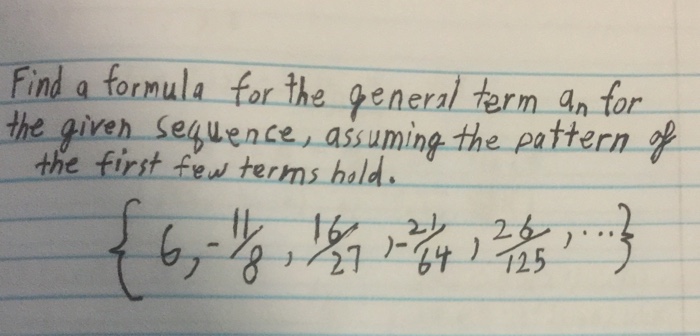 Find a formula for the general term an for
the given sequence, assuming the pattern of
the first few terms hold.
{ 6, -11/8, 16/27, -21/64, 26/125, ...}